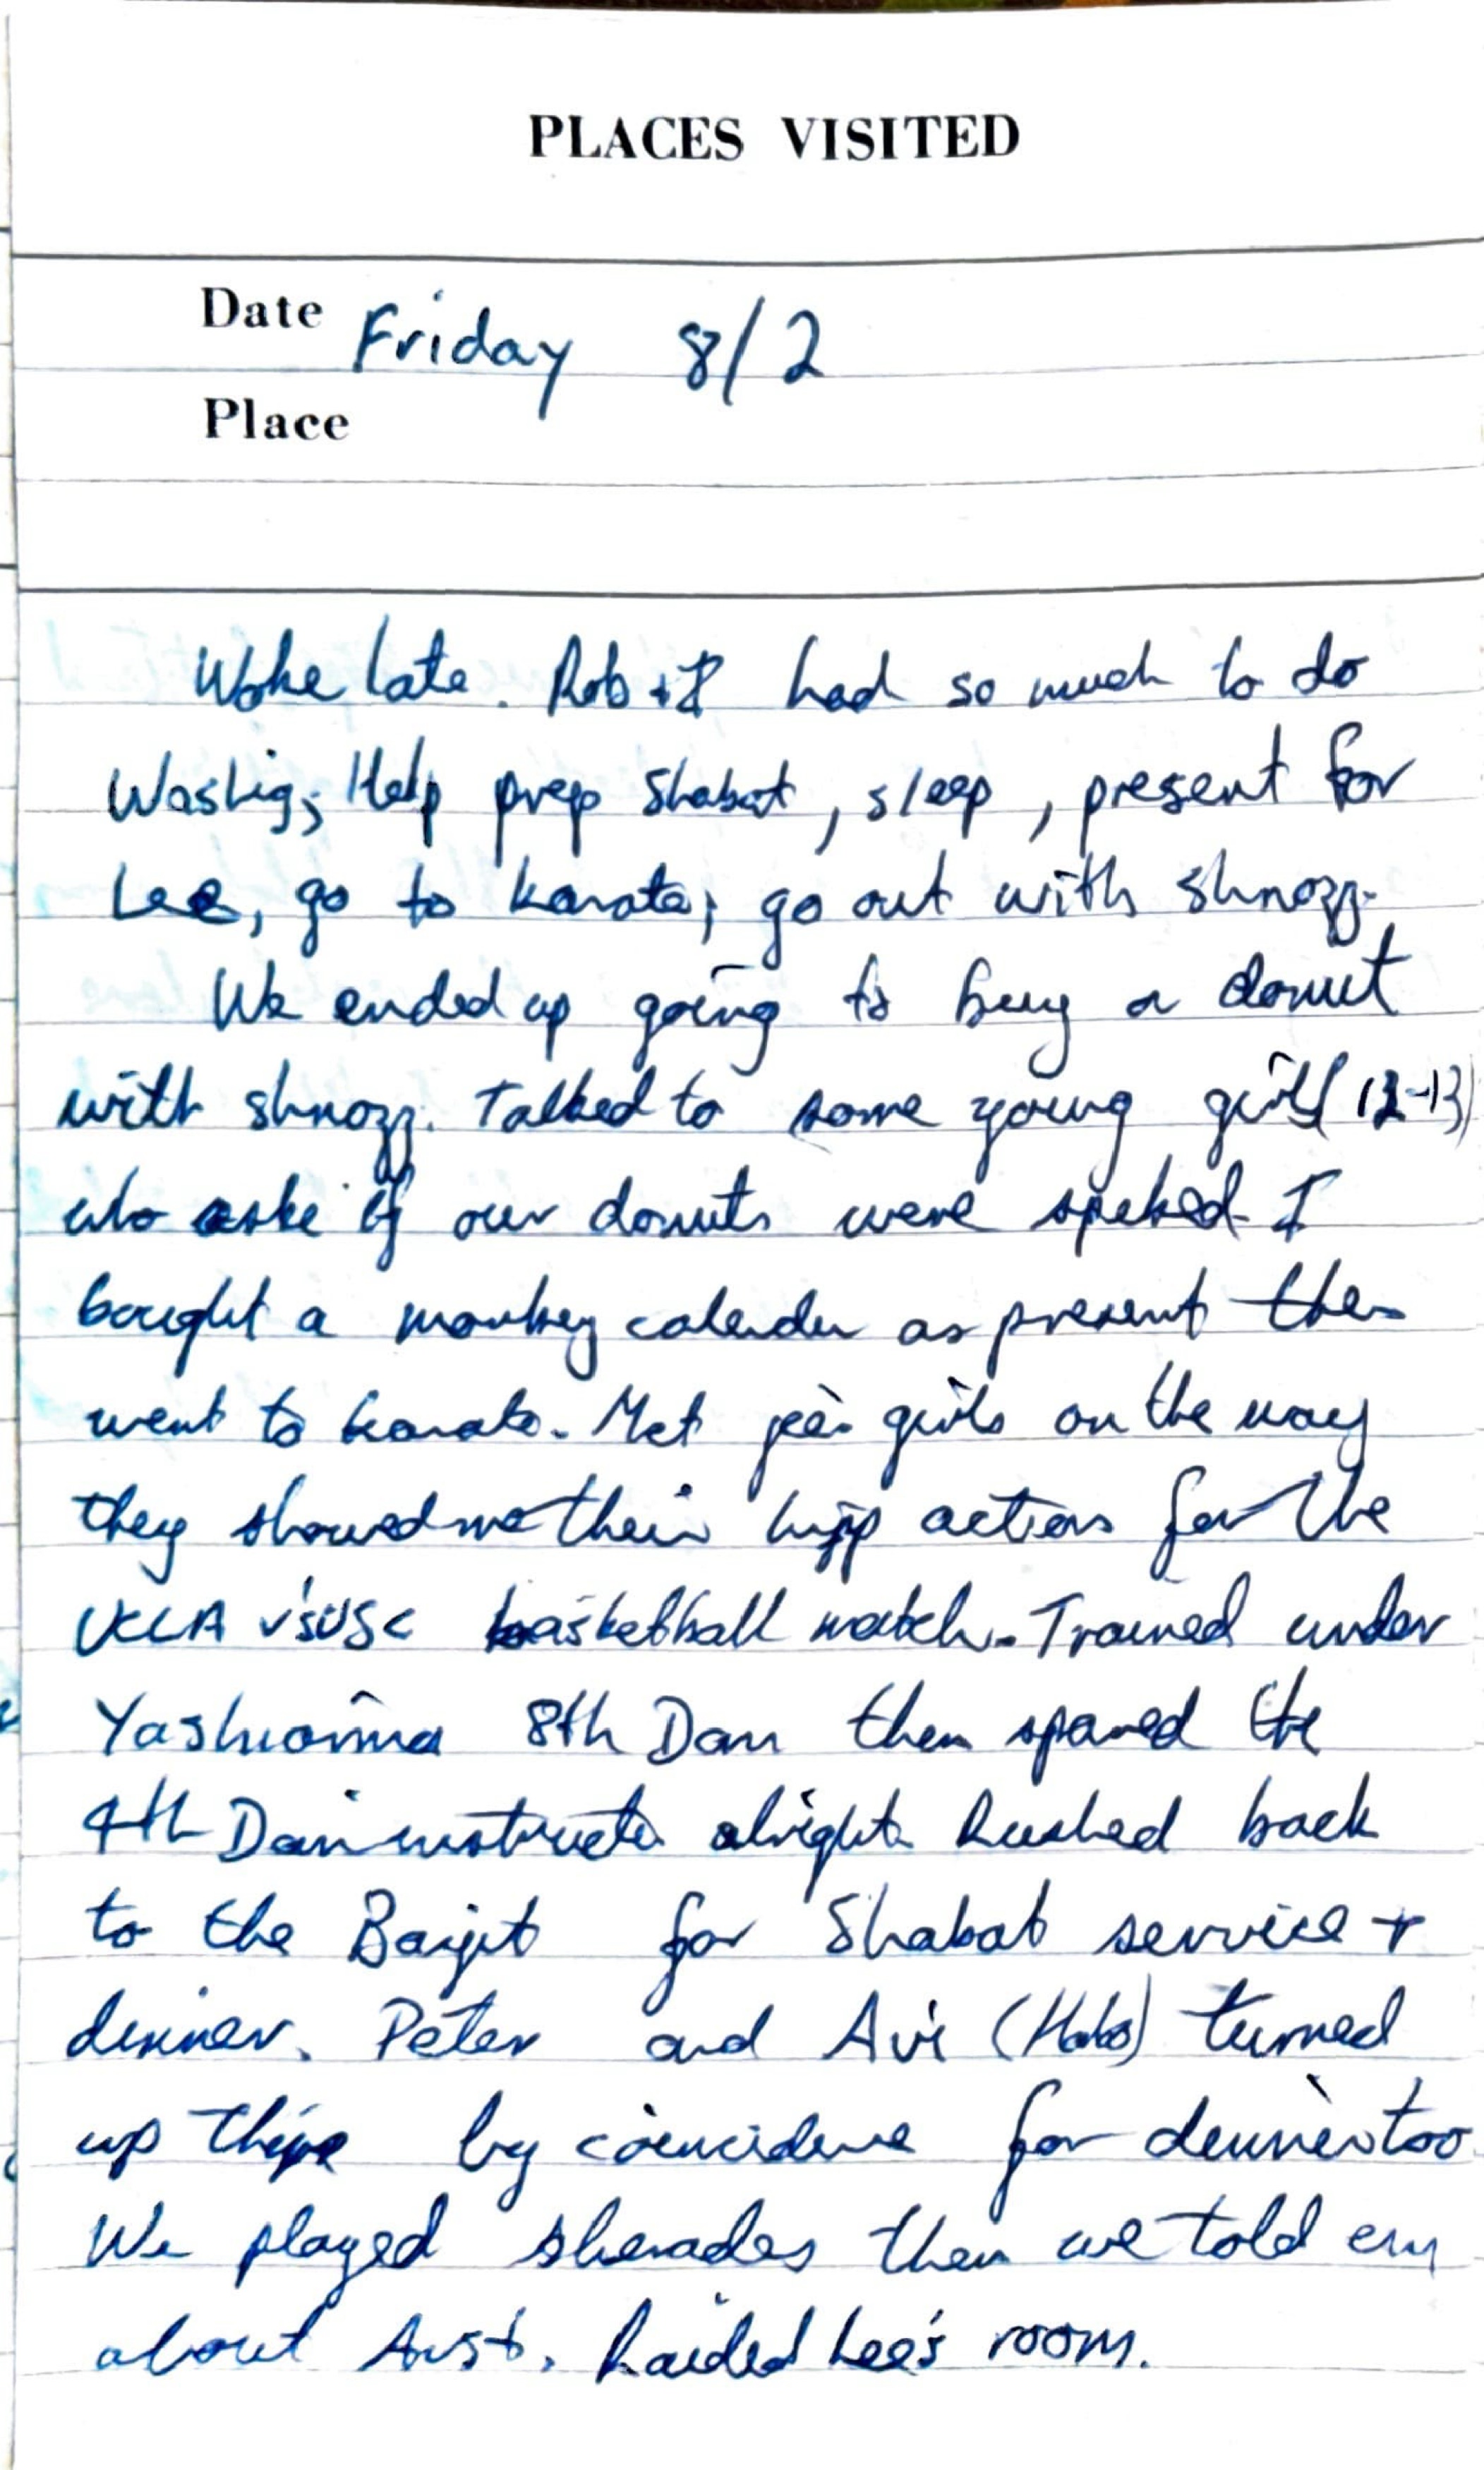 PLACES VISITED
Date Friday 8/2
Place
Woke late. Rob + I had so much to do
Washig, Help prep Shabat, sleep, present for
Lee, go to karate, go out with shnozz.
We ended up going to buy a donut
with shnozz. Talked to some young girls (12-13)
who aske if our donuts were I
bought a monkey calender as present then
went to karate. Met girls on the way
they showed me their hipp actions for the
UCLA v's USC basketball match. Trained under
8th Dan then spared the
4th Dan instructor alright. Rushed back
to the Bayit for Shabat service +
dinner. Peter and Avi (Habo) turned
up there by coincidence for dinner too
We played sherades then we told em
about Aust. Raided Lee's room.